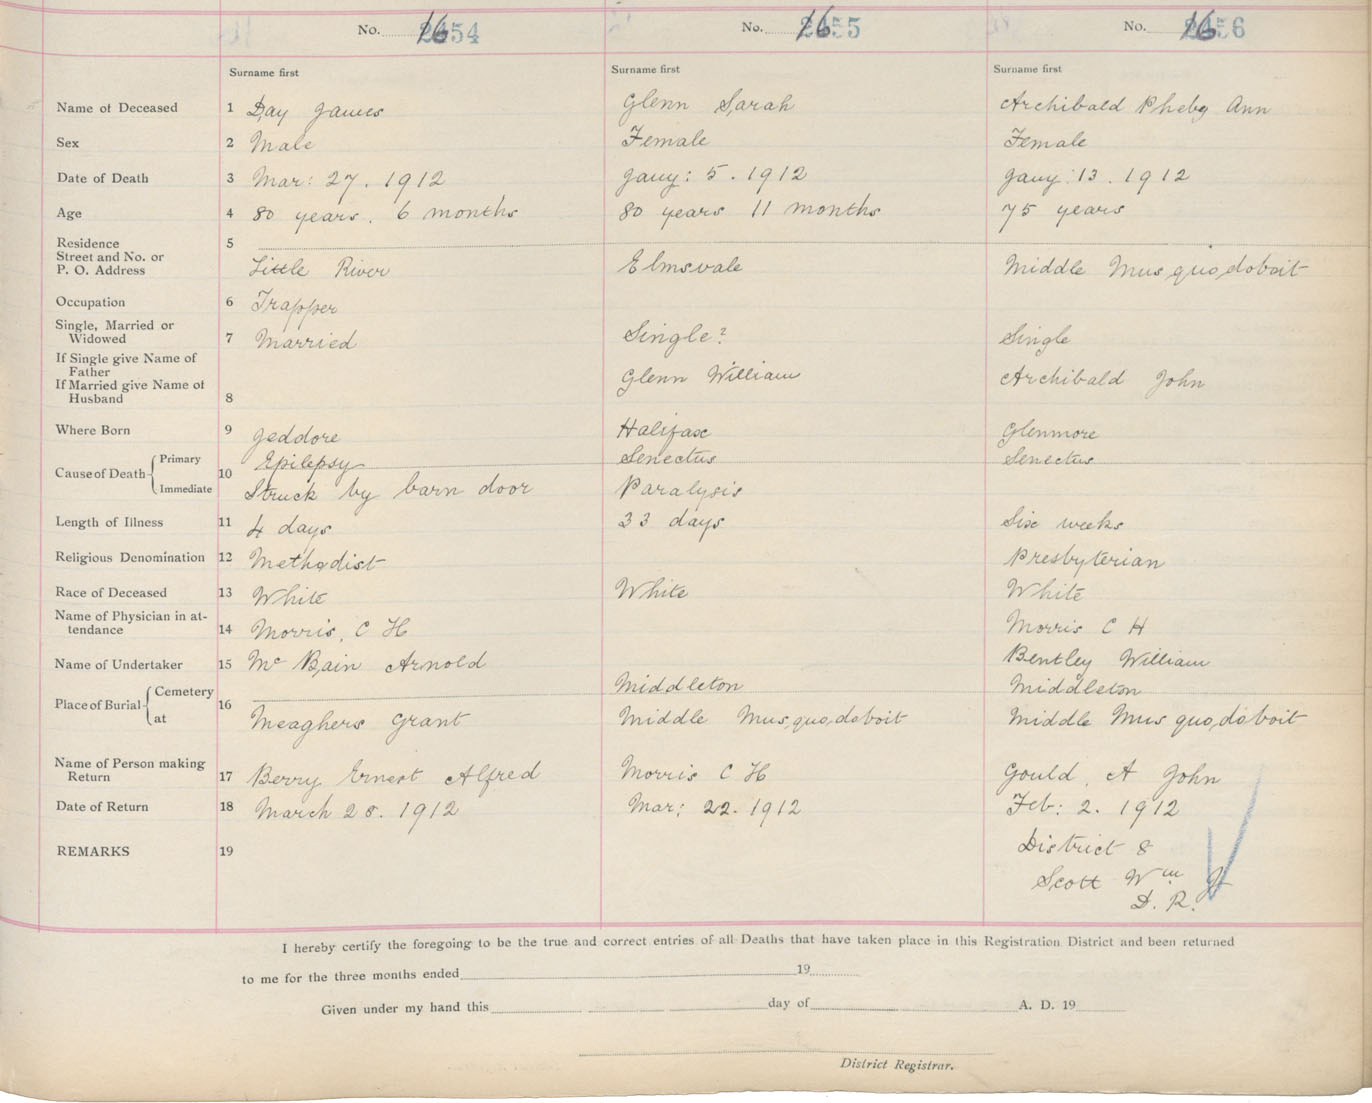 No. 1654 No. 1655 No. 1656
Surname first Surname first Surname first
Name of Deceased 1 Day James Glenn Sarah Archibald Pheby Ann
Sex 2 Male Female Female
Date of Death 3 Mar: 27. 1912 Jany: 5. 1912 Jany: 13. 1912
Age 4 80 years. 6 months 80 years 11 months 75 years
Residence 5
Street and No. or
P. O. Address Little River Elmsvale Middle Musquodoboit
Occupation 6 Trapper
Single, Married or
Widowed 7 Married Single? Single
If Single give Name of
Father
If Married give Name of
Husband 8 Glenn William Archibald John
Where Born 9 Jeddore Halifax Glenmore
Cause of Death Primary 10 Epilepsy Senectus Senectus
Immediate Struck by barn door Paralysis
Length of Illness 11 4 days 33 days Six weeks
Religious Denomination 12 Methodist Presbyterian
Race of Deceased 13 White White White
Name of Physician in at-
tendance 14 Morris, C H Morris C H
Name of Undertaker 15 Mc Bain Arnold Bentley William
Place of Burial Cemetery 16 Middleton Middleton
at Meaghers Grant Middle Musquodoboit Middle Musquodoboit
Name of Person making
Return 17 Berry Ernest Alfred Morris C H Gould A John
Date of Return 18 March 28. 1912 Mar: 22. 1912 Feb: 2. 1912
REMARKS 19 District 8
Scott Wm
D. R.
I hereby certify the foregoing to be the true and correct entries of all Deaths that have taken place in this Registration District and been returned
to me for the three months ended 19
Given under my hand this day of A. D. 19
District Registrar.